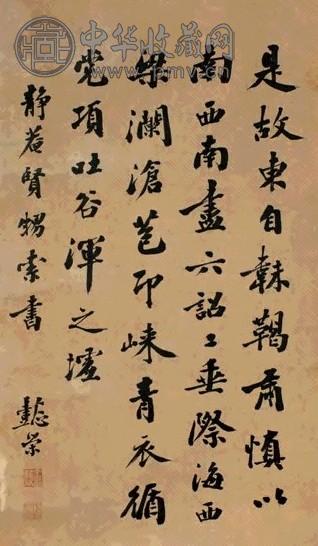 中华收藏网
www.pmv.cn
是故東自靺鞨肅慎以
南西南盡六詔之垂際海西
梁瀾滄卭崍青衣循
党項吐谷渾之壖
靜菴賢甥索書
懿榮